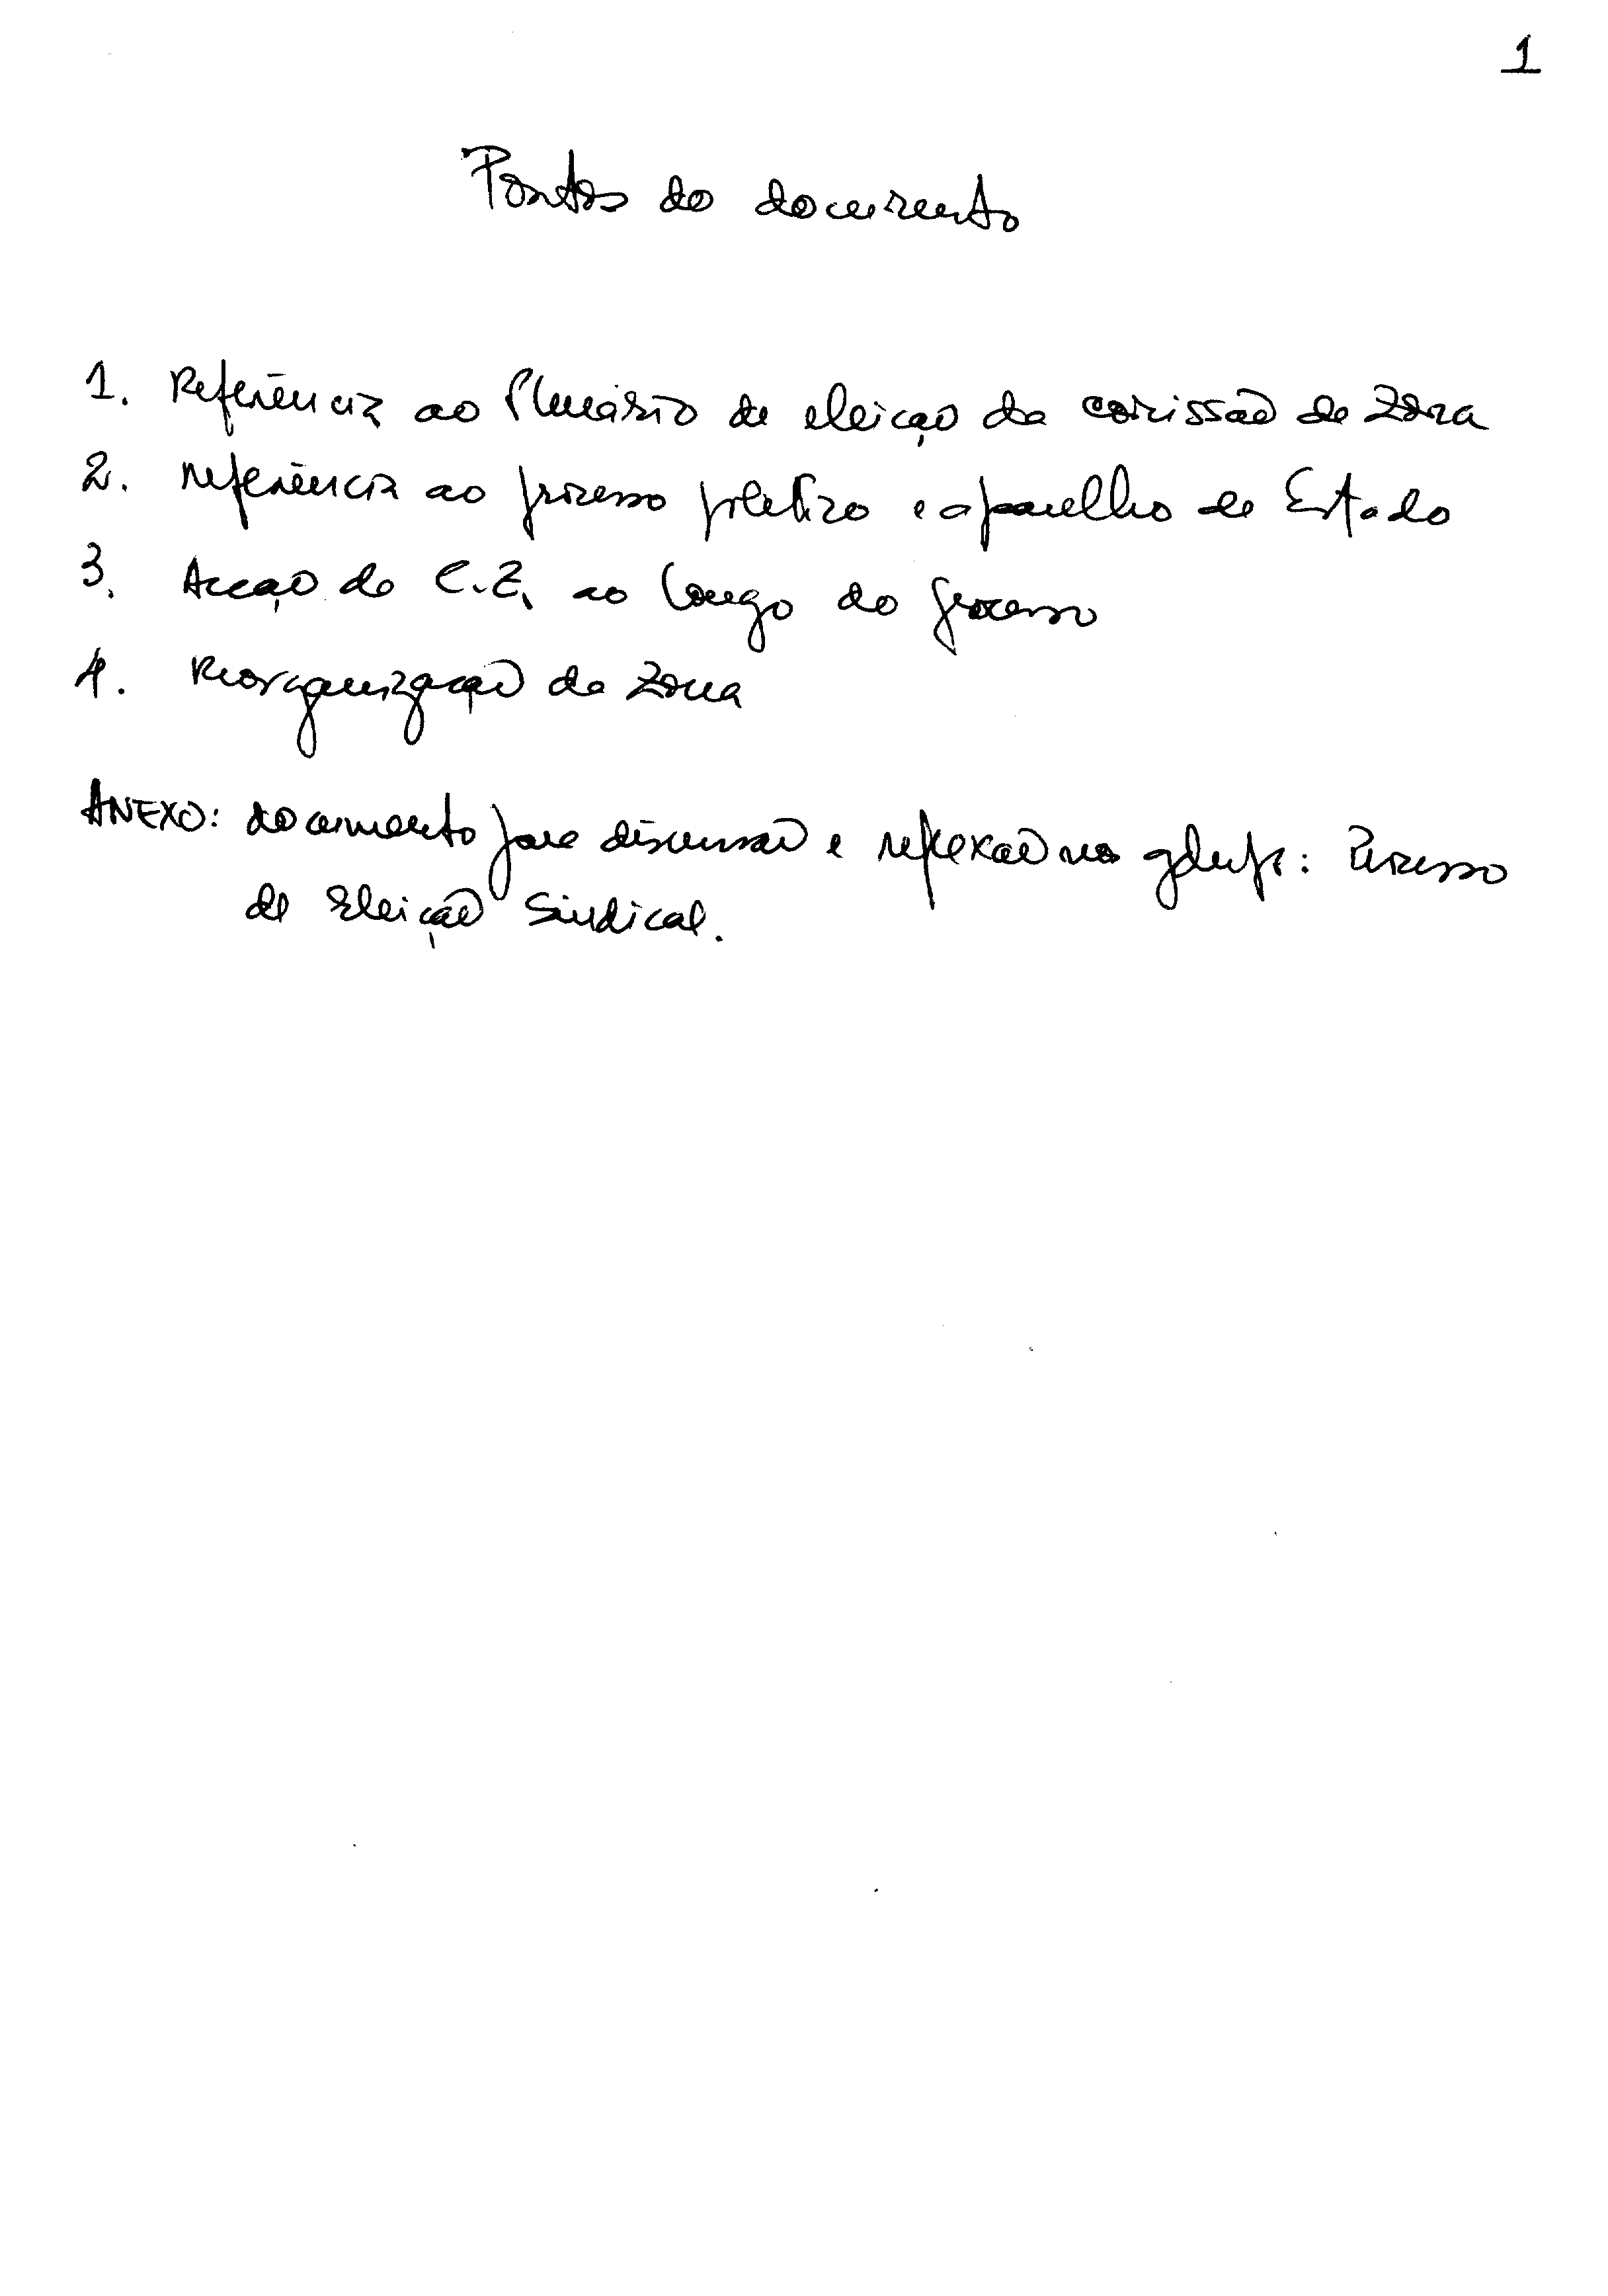 1
Pontos do documento
1. Referência ao Plenário de eleição da comissão de Zona
2. Referência ao processo político e aparelho de Estado
3. Acção do C.Z. ao longo do processo
4. Reorganização da Zona
ANEXO: documento para discussão e reflexão nos : Processo
de Eleição Sindical.